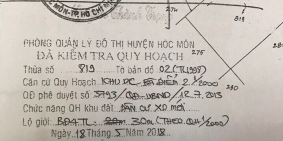 MÔN-TP.HỒ CHÍ M
274
819
PHÒNG QUẢN LÝ ĐÔ THỊ HUYỆN HÓC MÔN
ĐÃ KIỂM TRA QUY HOẠCH
275
Thửa số 819 Tờ bản đồ 02 (TL1998)
Căn cứ Quy Hoạch KHU DC BÀ ĐIỂM 2. 1/2000
QĐ phê duyệt số 5793/QĐ-UBND 12.7.2013
280
Chức năng QH khu đất: DÂN CƯ XD MỚI
Lộ giới: BĐ4TL 30m (THEO QH 1/2000)
Ngày 18 Tháng 5 Năm 2018